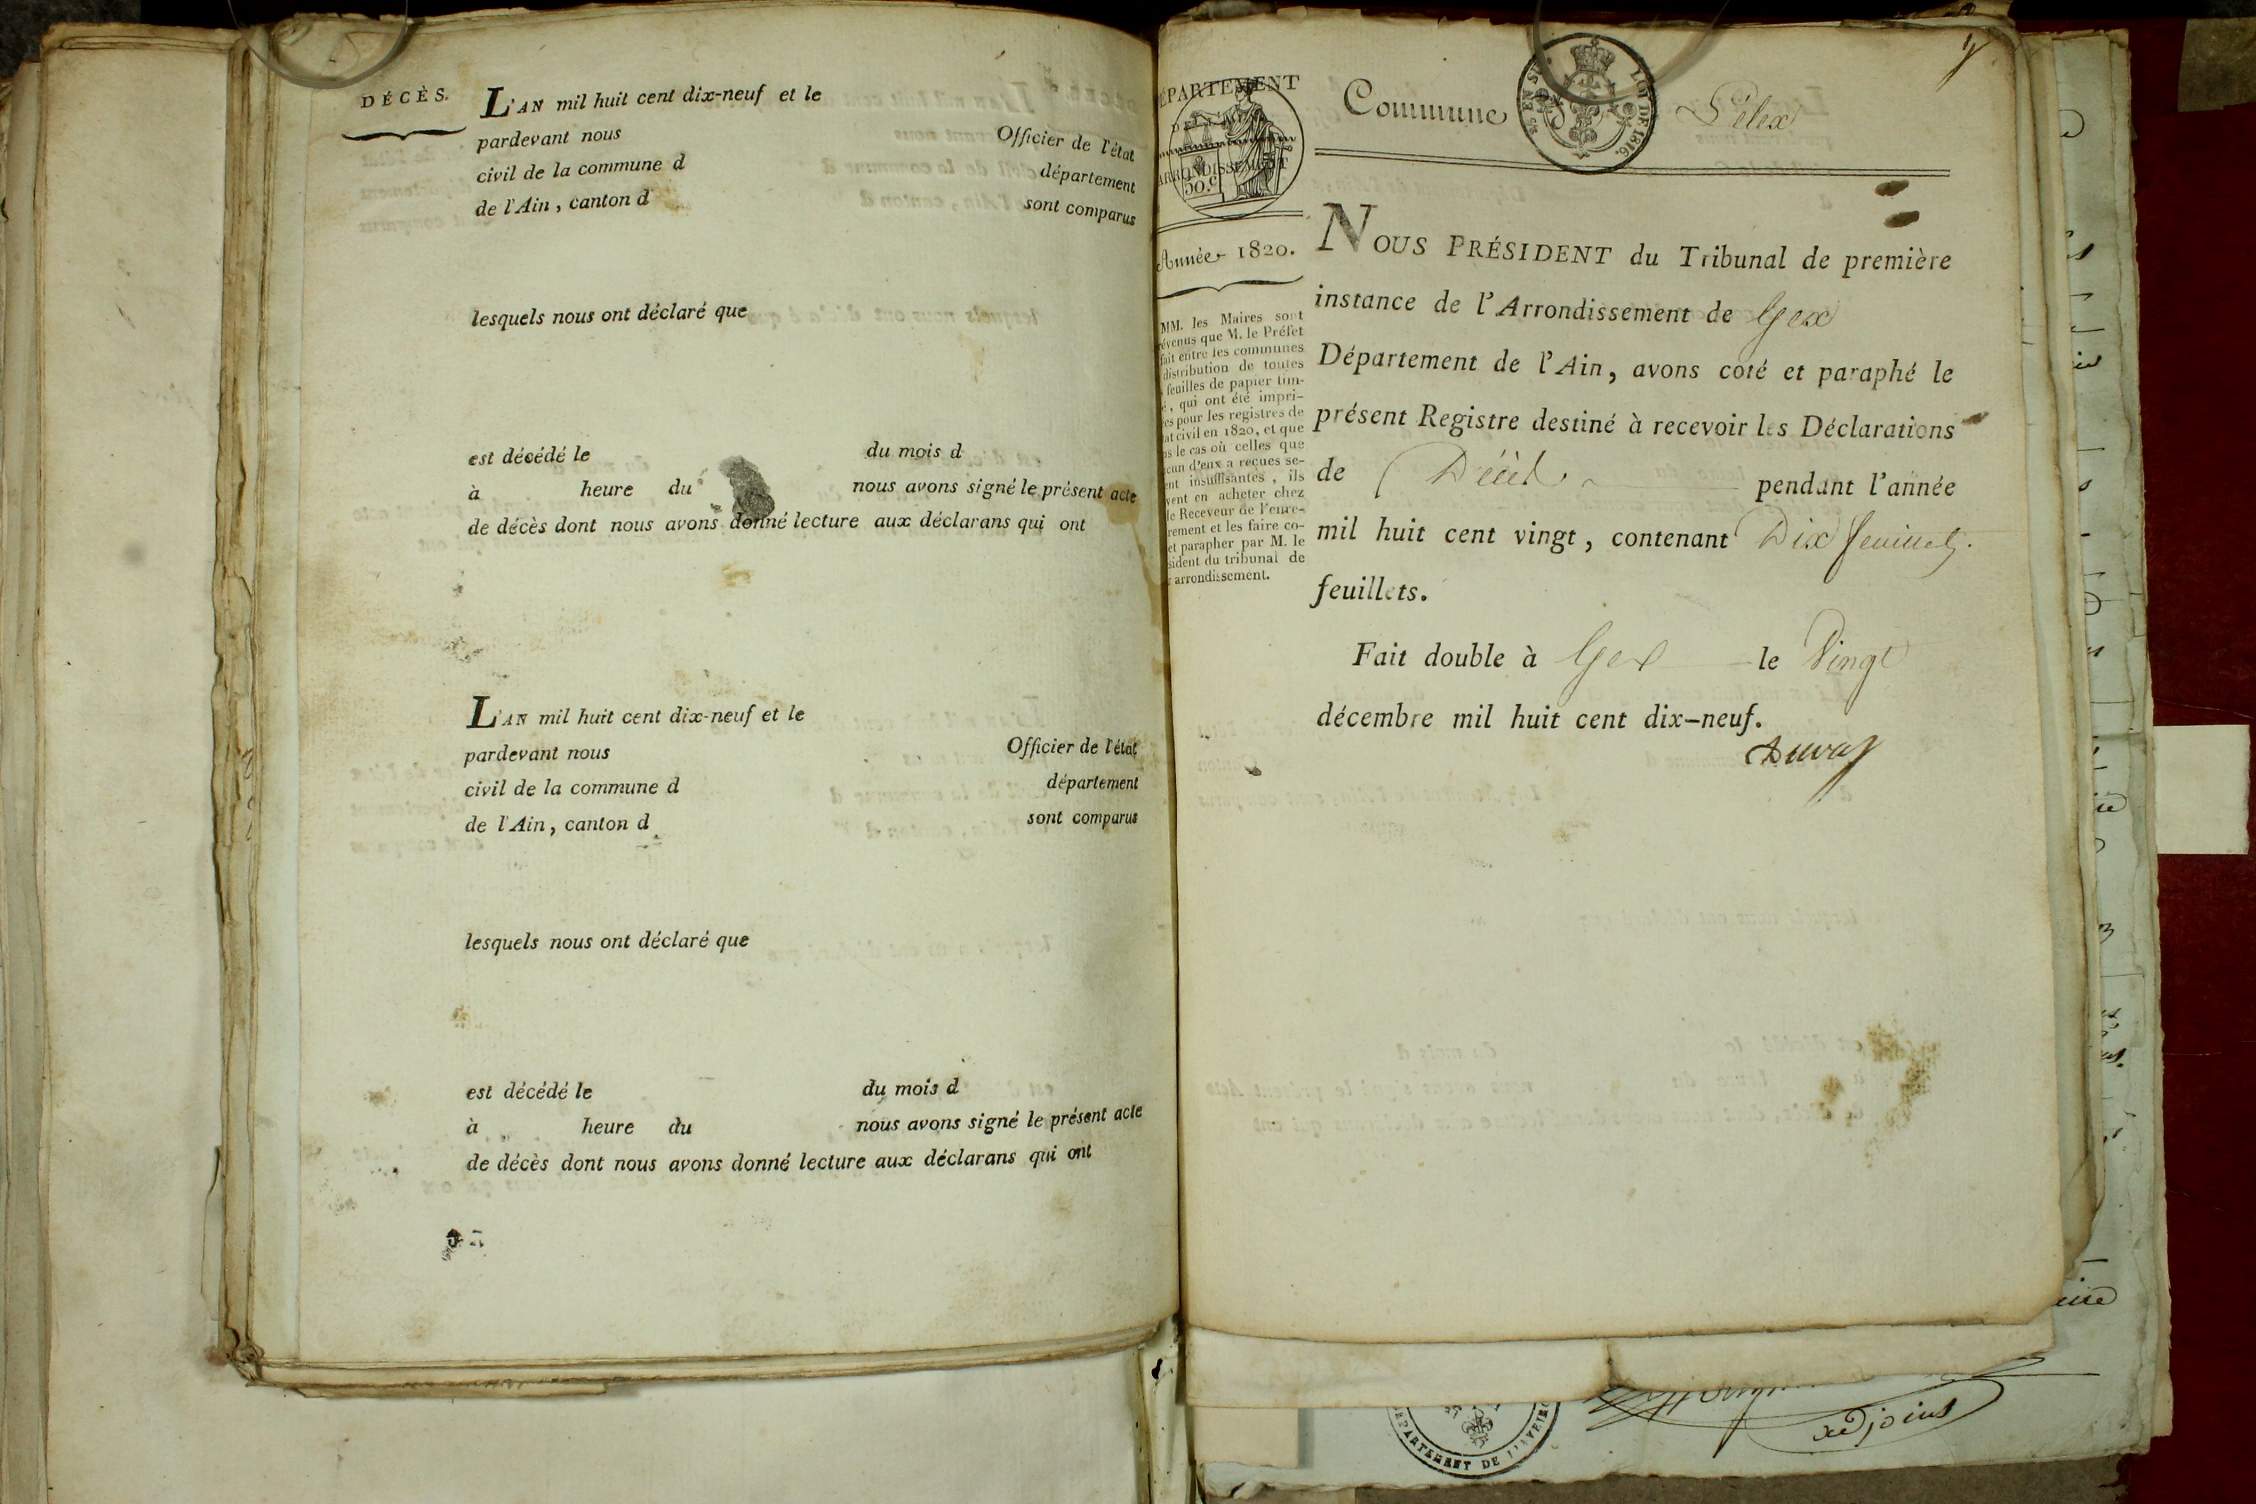 DÉCÈS.
L'AN mil huit cent dix-neuf et le
pardevant nous Officier de l'état
civil de la commune d département
de l'Ain, canton d sont comparus
lesquels nous ont déclaré que
est décédé le du mois d
à heure du nous avons signé le présent acte
de décès dont nous avons donné lecture aux déclarans qui ont
L'AN mil huit cent dix-neuf et le
pardevant nous Officier de l'état
civil de la commune d département
de l'Ain, canton d sont comparus
lesquels nous ont déclaré que
est décédé le du mois d
à heure du nous avons signé le présent acte
de décès dont nous avons donné lecture aux déclarans qui ont
ÉPARTEMENT
DE
ARRONDISSEMENT
50.c
Année 1820.
MM. les Maires sont
évenus que M. le Préfet
fait entre les communes
distribution de toutes
feuilles de papier tim-
é, qui ont été impri-
es pour les registres de
at civil en 1820, et que
ns le cas où celles que
cun d'eux a reçues se-
ent insuffisantes, ils
vent en acheter chez
le Receveur de l'enre-
rement et les faire co-
et parapher par M. le
sident du tribunal de
arrondissement.
Commune Lélex
LOI DE 1816.
NOUS PRÉSIDENT du Tribunal de première
instance de l'Arrondissement de Gex
Département de l'Ain, avons coté et paraphé le
présent Registre destiné à recevoir les Déclarations
de Décès pendant l'année
mil huit cent vingt, contenant Dix feuillets.
feuillets.
Fait double à Gex le Vingt
décembre mil huit cent dix-neuf.
adjoint